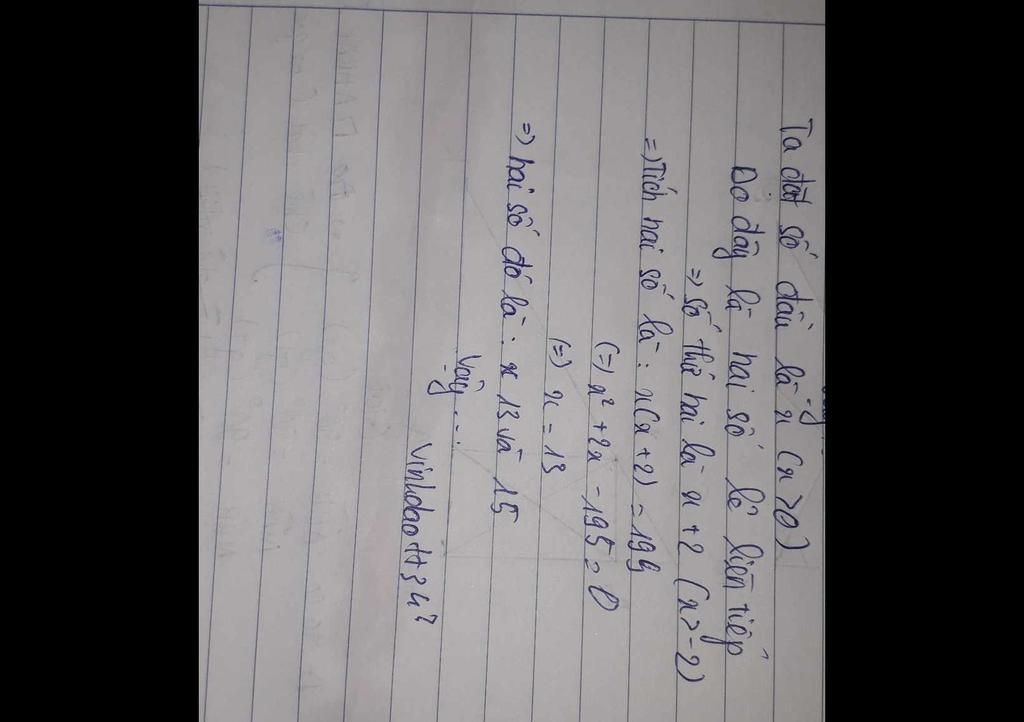 Ta đặt số đầu là x (x>0)
Do đây là hai số lẻ liên tiếp
=> số thứ hai là x+2 (x>-2)
=> Tích hai số là: x(x+2) = 195
(=) x² + 2x - 195 = 0
(=) x = 13
=> hai số đó là: x 13 và 15
Vậy ...